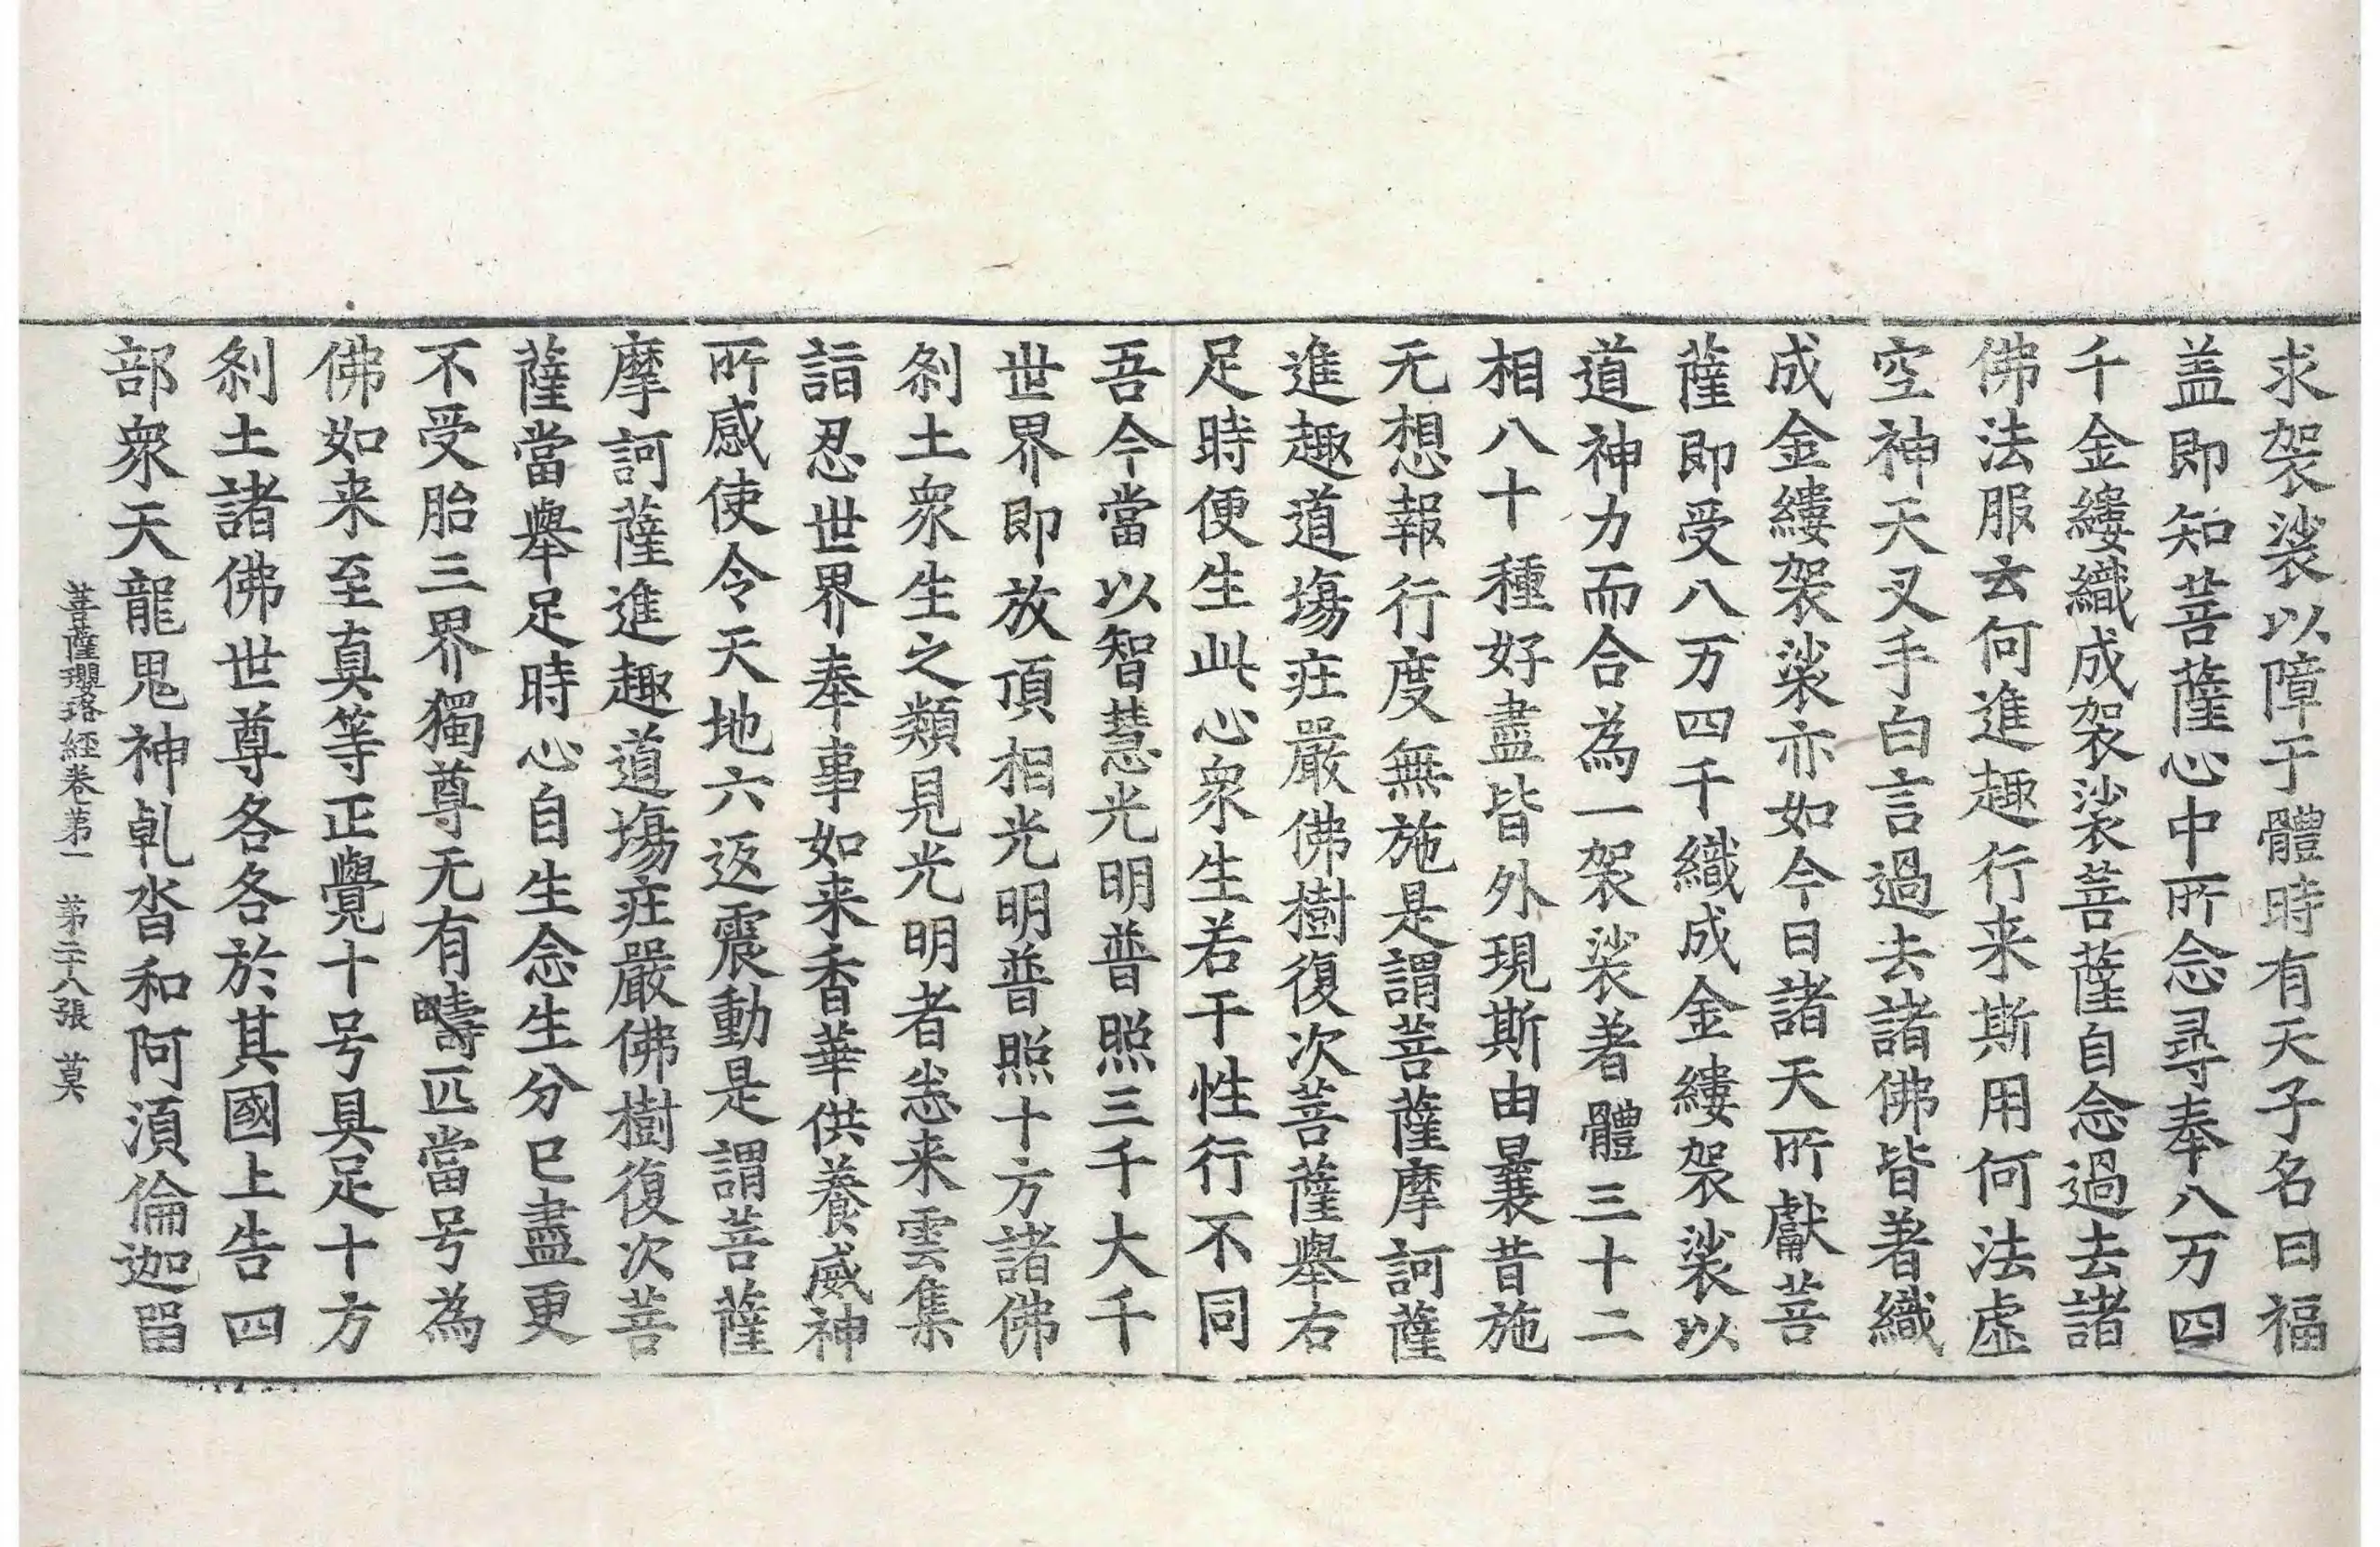 求袈裟以障于體時有天子名曰福
盖即知菩薩心中所念尋奉八万四
千金縷織成袈裟菩薩自念過去諸
佛法服云何進趣行来斯用何法虛
空神天叉手白言過去諸佛皆著織
成金縷袈裟亦如今日諸天所獻菩
薩即受八万四千織成金縷袈裟以
道神力而合為一袈裟著體三十二
相八十種好盡皆外現斯由曩昔施
无想報行度無施是謂菩薩摩訶薩
進趣道場莊嚴佛樹復次菩薩舉右
足時便生此心衆生若干性行不同
吾今當以智慧光明普照三千大千
世界即放頂相光明普照十方諸佛
刹土衆生之類見光明者恙来雲集
詣忍世界奉事如来香華供養威神
所感使令天地六返震動是謂菩薩
摩訶薩進趣道場莊嚴佛樹復次菩
薩當舉足時心自生念生分已盡更
不受胎三界獨尊无有疇匹當号為
佛如来至真等正覺十号具足十方
刹土諸佛世尊各各於其國上告四
部衆天龍鬼神乹沓和阿湏倫迦留
菩薩瓔珞經卷第一 第二十八張 莫